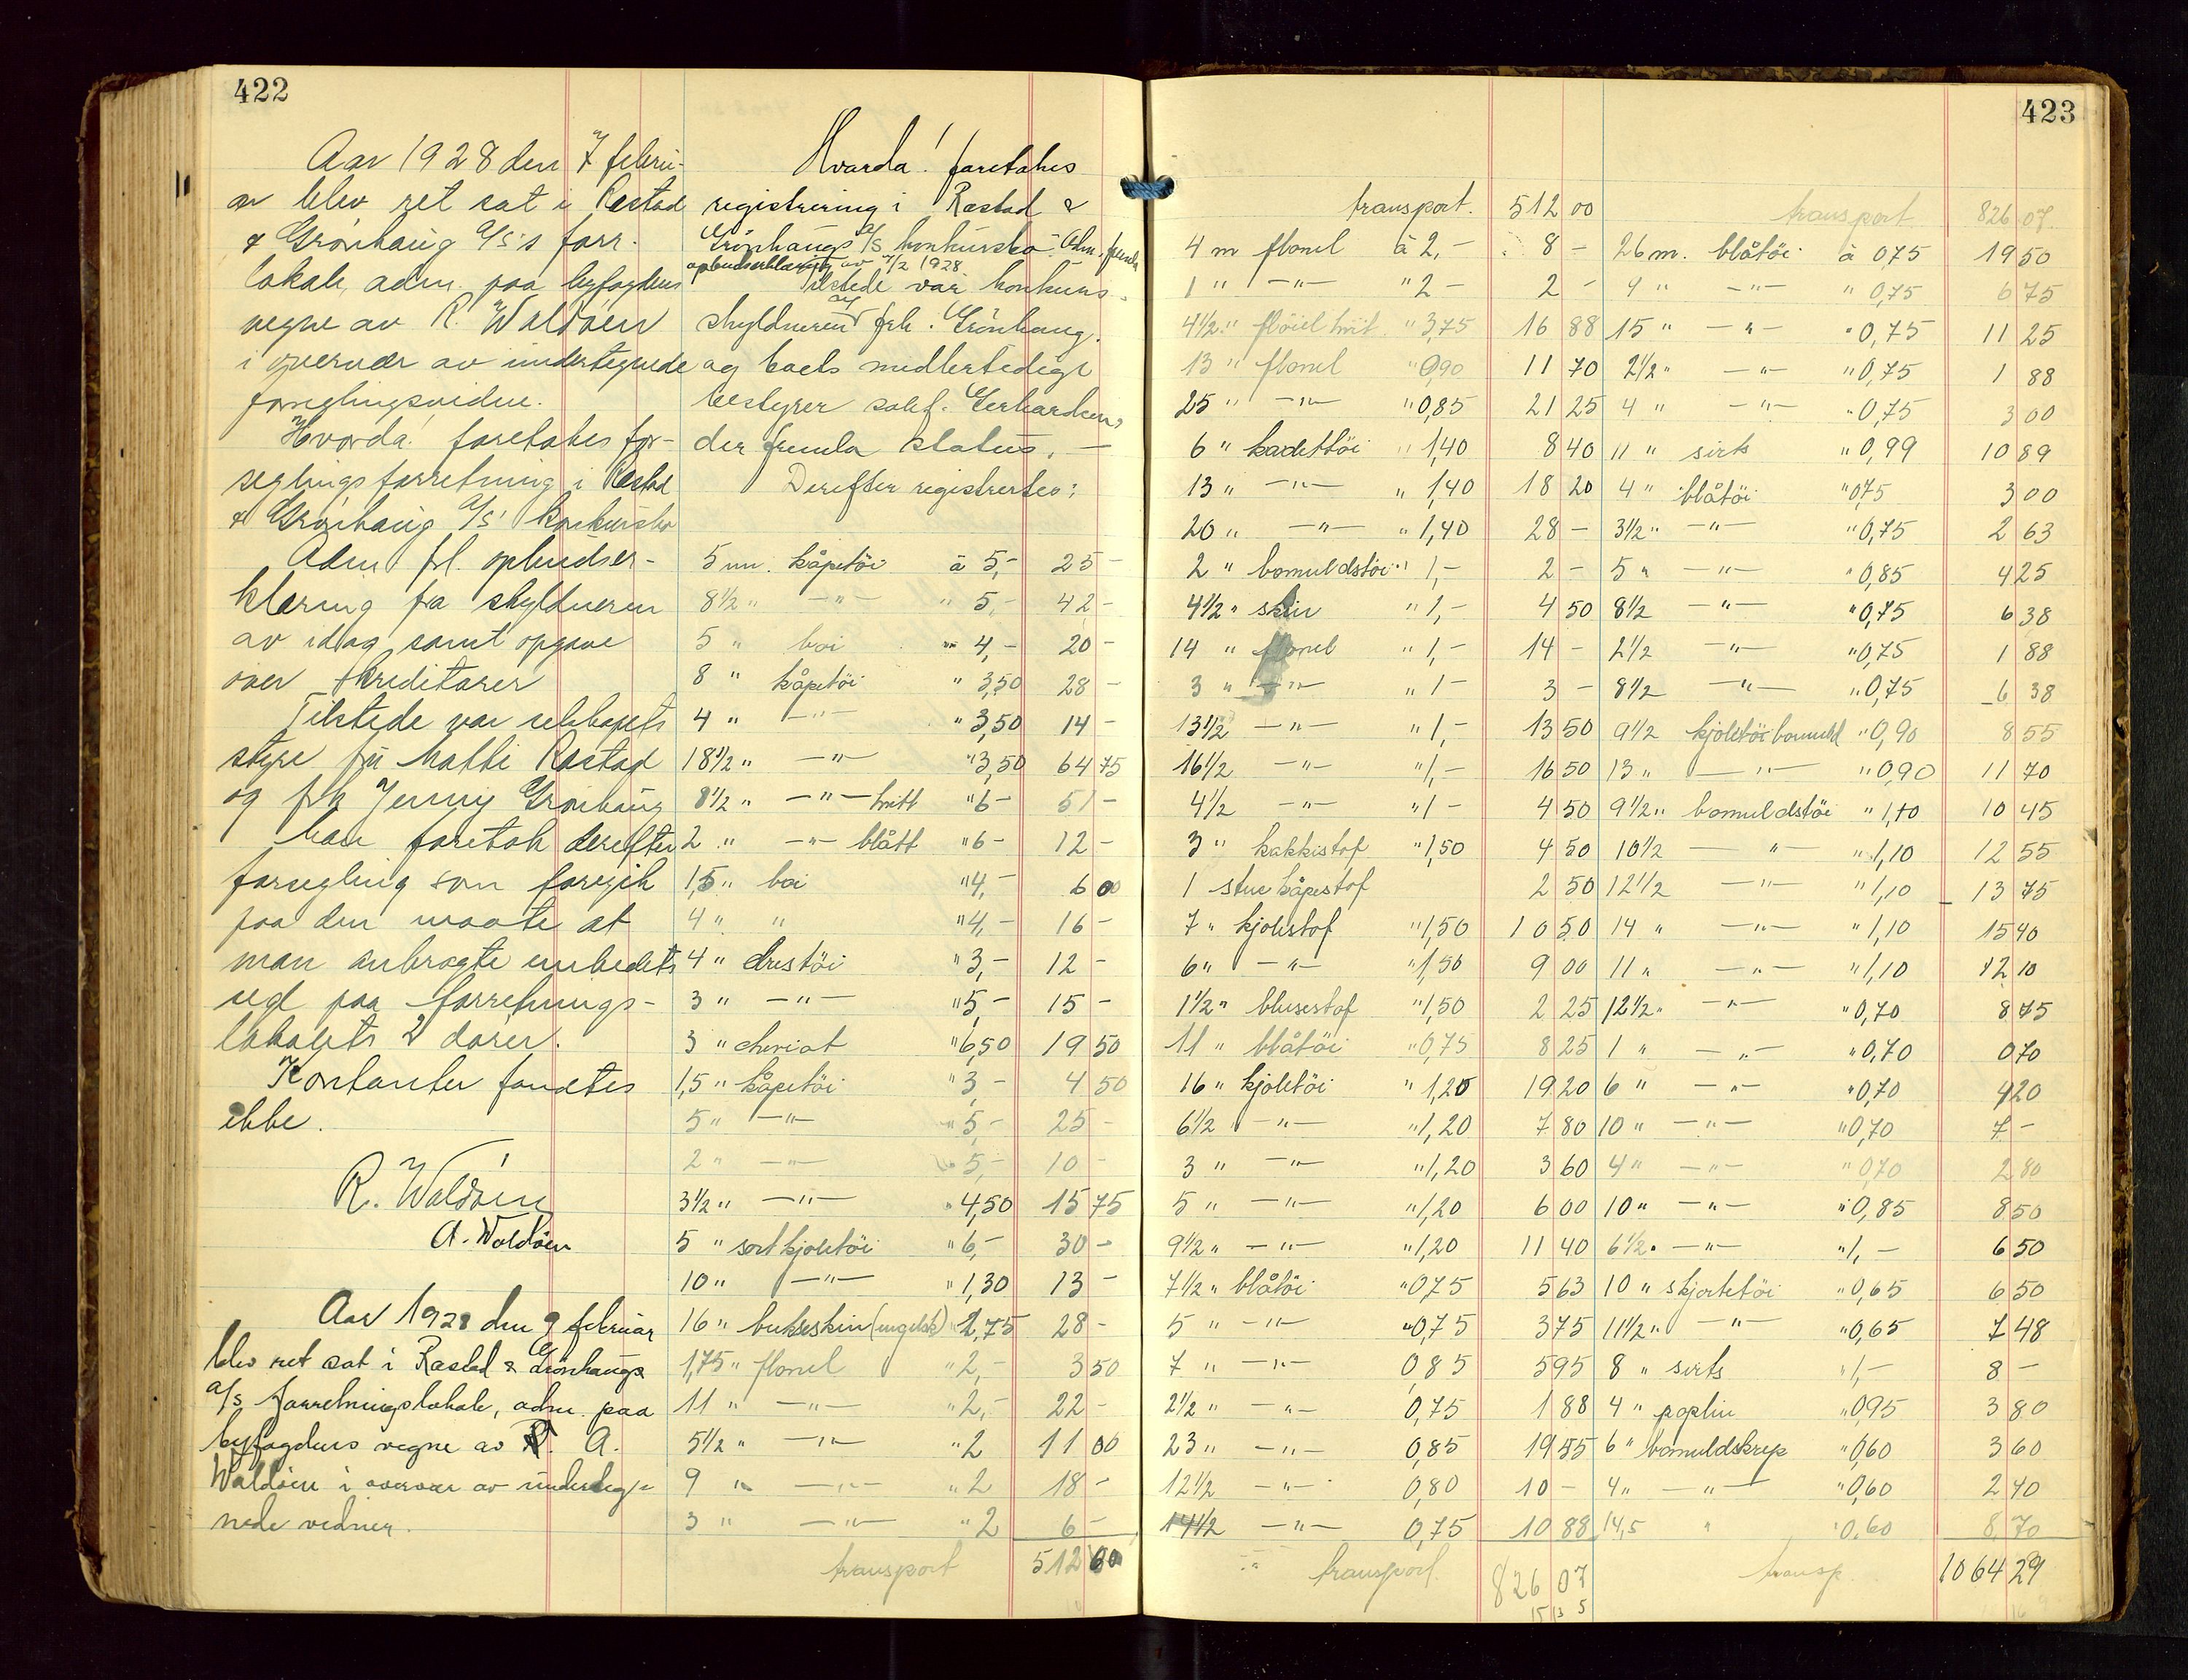 422
Aar 1928 den 7 febru-
ar blev ret sat i Røstad
& Grønhaug A/S's forr.
lokale, adm. paa byfogdens
vegne av R. Waldøen
i overvær av undertegnede
forseglingsvidne.
Hvorda! foretakes for-
seglingsforretning i Røstad
& Grønhaug A/S' konkursbo
Adm frl. opbudser-
klæring fra skyldneren
av idag samt opgave
over kreditorer
Tilstede var selskapets
styre fru Røstad
og frk Jenny Grønhaug
Man foretok derefter
forsegling som foregik
paa den maate at
man anbragte embedets
segl paa forretnings-
lokalets 2 dører.
Kontanter fandtes
ikke.
R. Waldøen
A. Waldøen
Aar 1928 den 9 februar
blev ret sat i Røstad & Grønhaugs
a/s forretningslokale, adm. paa
byfogdens vegne av A.
Waldøen i overvær av underteg-
nede vidner.
Hvorda! foretokes
registrering i Røstad &
Grønhaugs A/S konkursbo. Adm. fremla
opbudserklæring av 7/2 1928
Tilstede var konkurs-
skyldneren ved frk. Grønhaug.
og boets midlertidige
bestyrer sakf. Gerhardsen,
der fremla status. —
Derefter registrertes:
5 m. kåpetöi à 5,- 25 -
8 1/2 " —"— " 5,- 42 -
5 " boi " 4,- 20 -
8 " kåpetöi " 3,50 28 -
4 " —"— " 3,50 14 -
18 1/2 " —"— " 3,50 64 75
8 1/2 " —"— hvitt " 6- 51 -
2 " —"— blått " 6- 12 -
1,5 " boi " 4,- 6 00
4 " " " 4,- 16 -
4 " drestöi " 3,- 12 -
3 " —"— " 5,- 15 -
3 " cheviot " 6,50 19 50
1,5 " kåpetöi " 3,- 4 50
5 " —"— " 5,- 25 -
2 " —"— " 5,- 10 -
3 1/2 " —"— " 4,50 15 75
5 " sort kjoletöi " 6,- 30 -
10 " —"— " 1,30 13 -
16 " bukseskin (engelsk) " 1,75 28 -
1,75 " flonel " 2,- 3 50
11 " —"— " 2,- 22 -
5 1/2 " —"— " 2 11 00
9 " —"— " 2 18 -
3 " —"— " 2 6 -
transport 512 00
423
transport. 512 00
4 m flonel à 2,- 8 -
1 " —"— " 2 - 2 -
4 1/2 " flöiel hvit " 3,75 16 88
13 " flonel " 0,90 11 70
25 " —"— " 0,85 21 25
6 " kadettöi " 1,40 8 40
13 " —"— " 1,40 18 20
20 " —"— " 1,40 28 -
2 " bomuldstöi " 1,- 2 -
4 1/2 " skin " 1,- 4 50
14 " flonel " 1,- 14 -
3 " —"— " 1- 3 -
13 1/2 —"— " 1,- 13 50
16 1/2 —"— " 1,- 16 50
4 1/2 —"— " 1- 4 50
3 " kakkistof " 1,50 4 50
1 stue kåpestof 2 50
7 " kjolestof " 1,50 10 50
6 " —"— " 1,50 9 00
1 1/2 " blusestof " 1,50 2 25
11 " blåtöi " 0,75 8 25
16 " kjoletöi " 1,20 19 20
6 1/2 —"— " 1,20 7 80
3 " —"— " 1,20 3 60
5 " —"— " 1,20 6 00
9 1/2 " —"— " 1,20 11 40
7 1/2 " blåtöi " 0,75 5 63
5 " —"— " 0,75 3 75
7 " —"— 0,85 5 95
2 1/2 " —"— 0,75 1 88
23 " —"— 0,85 19 55
12 1/2 —"— 0,80 10 -
14 1/2 —"— 0,75 10 88
transport. 826 07
transport 826 07
26 m. blåtöi à 0,75 19 50
9 " —"— " 0,75 6 75
15 " —"— " 0,75 11 25
2 1/2 " —"— " 0,75 1 88
4 " —"— " 0,75 3 00
11 " sirts " 0,99 10 89
4 " blåtöi " 0,75 3 00
3 1/2 " —"— " 0,75 2 63
5 " —"— " 0,85 4 25
8 1/2 —"— " 0,75 6 38
2 1/2 —"— " 0,75 1 88
8 1/2 —"— " 0,75 6 38
9 1/2 kjoletöi bomuld " 0,90 8 55
13 " —"— " 0,90 11 70
9 1/2 " bomuldstöi " 1,10 10 45
10 1/2 —"— " 1,10 12 55
12 1/2 —"— " 1,10 13 75
14 " —"— " 1,10 15 40
11 " —"— " 1,10 12 10
12 1/2 " —"— " 0,70 8 75
1 " —"— " 0,70 0 70
6 " —"— " 0,70 4 20
10 " —"— " 0,70 7 -
4 " —"— " 0,70 2 80
10 " —"— " 0,85 8 50
6 1/2 " —"— " 1,- 6 50
10 " skjortetöi " 0,65 6 50
11 1/2 " —"— " 0,65 7 48
8 " sirts " 1,- 8 -
4 " poplin " 0,95 3 80
6 " bomuldskrep " 0,60 3 60
4 " —"— " 0,60 2 40
14,5 " " 0,60 8 70
transp. 1064 29